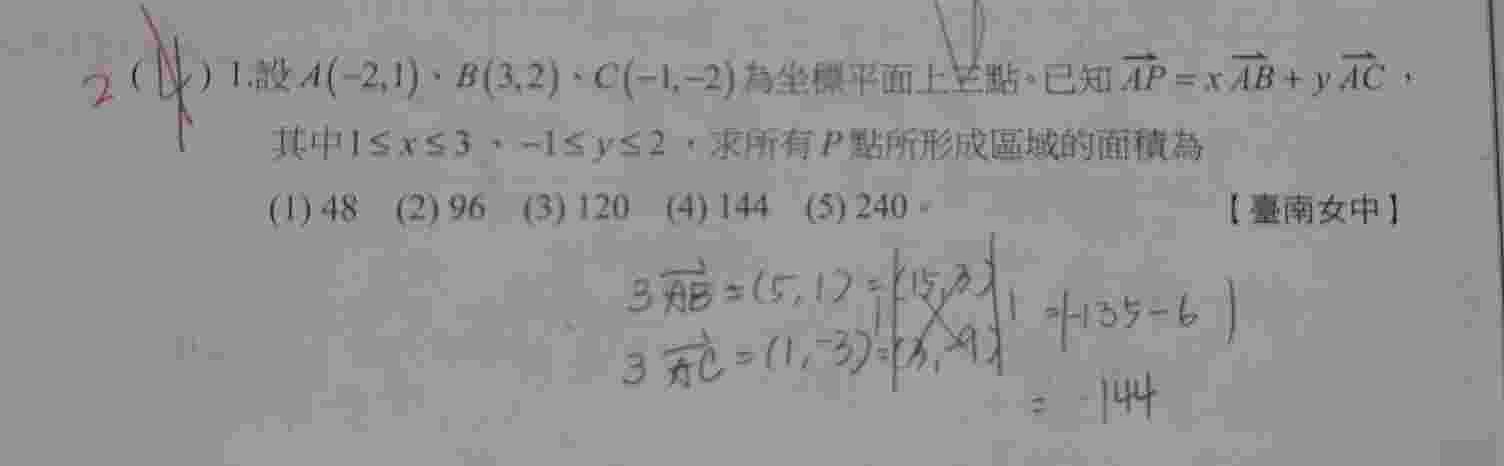 2 (4) 1.設 A(−2,1)、B(3,2)、C(−1,−2) 為坐標平面上三點。已知 AP = x AB + y AC，
其中 1 ≤ x ≤ 3 、 −1 ≤ y ≤ 2 ，求所有 P 點所形成區域的面積為
(1) 48 (2) 96 (3) 120 (4) 144 (5) 240。 【臺南女中】
3 AB = (5, 1) = (15, 3) = |-135-6|
3 AC = (1, -3) = (3, -9)
= 144